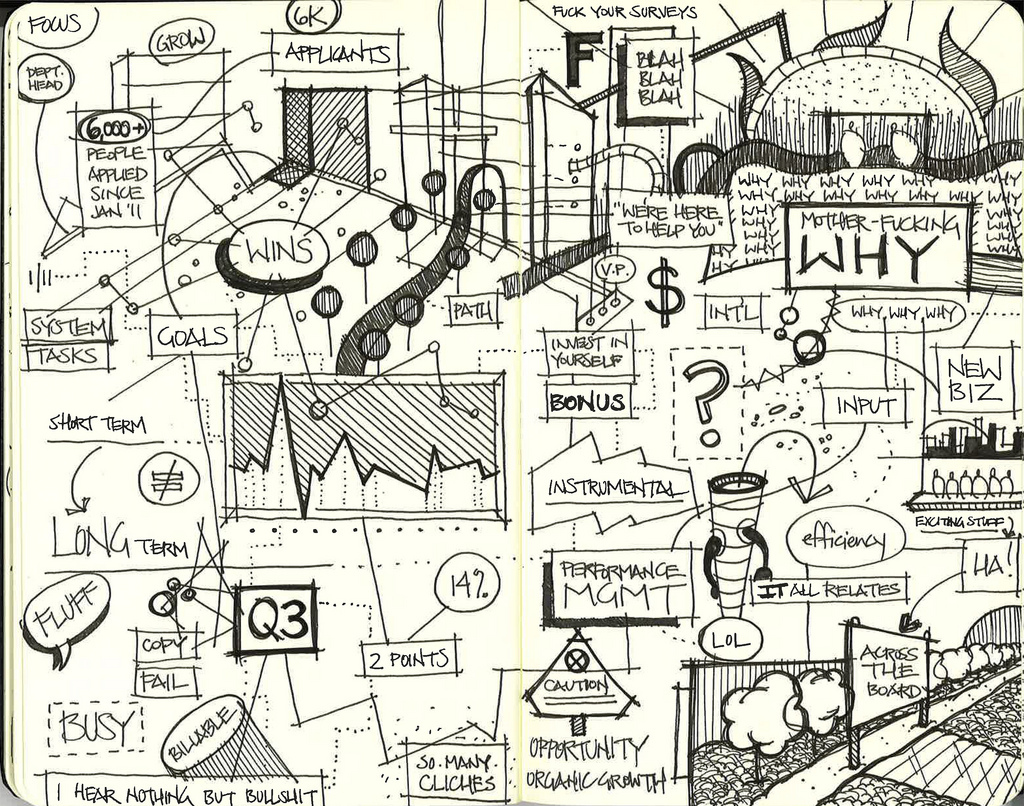 FOCUS
GROW
6K
APPLICANTS
DEPT.
HEAD
6,000+
PEOPLE
APPLIED
SINCE
JAN '11
1/11
WINS
SYSTEM
TASKS
GOALS
PATH
SHORT TERM
≠
LONG TERM
FLUFF
COPY
FAIL
Q3
14%
2 POINTS
BUSY
BILLABLE
SO MANY
CLICHES
I HEAR NOTHING BUT BULLSHIT
FUCK YOUR SURVEYS
F
BLAH
BLAH
BLAH
"WE'RE HERE
TO HELP YOU"
WHY WHY WHY WHY WHY WHY
WHY WHY WHY WHY WHY WHY
WHY WHY
WHY WHY
WHY WHY
WHY WHY
WHY
MOTHER-FUCKING
WHY
V.P.
$
INT'L
WHY, WHY, WHY
INVEST IN
YOURSELF
BONUS
?
INPUT
NEW
BIZ
INSTRUMENTAL
EXCITING STUFF
efficiency
HA!
PERFORMANCE
MGMT
IT ALL RELATES
LOL
CAUTION
ACROSS
THE
BOARD
OPPORTUNITY
ORGANIC GROWTH